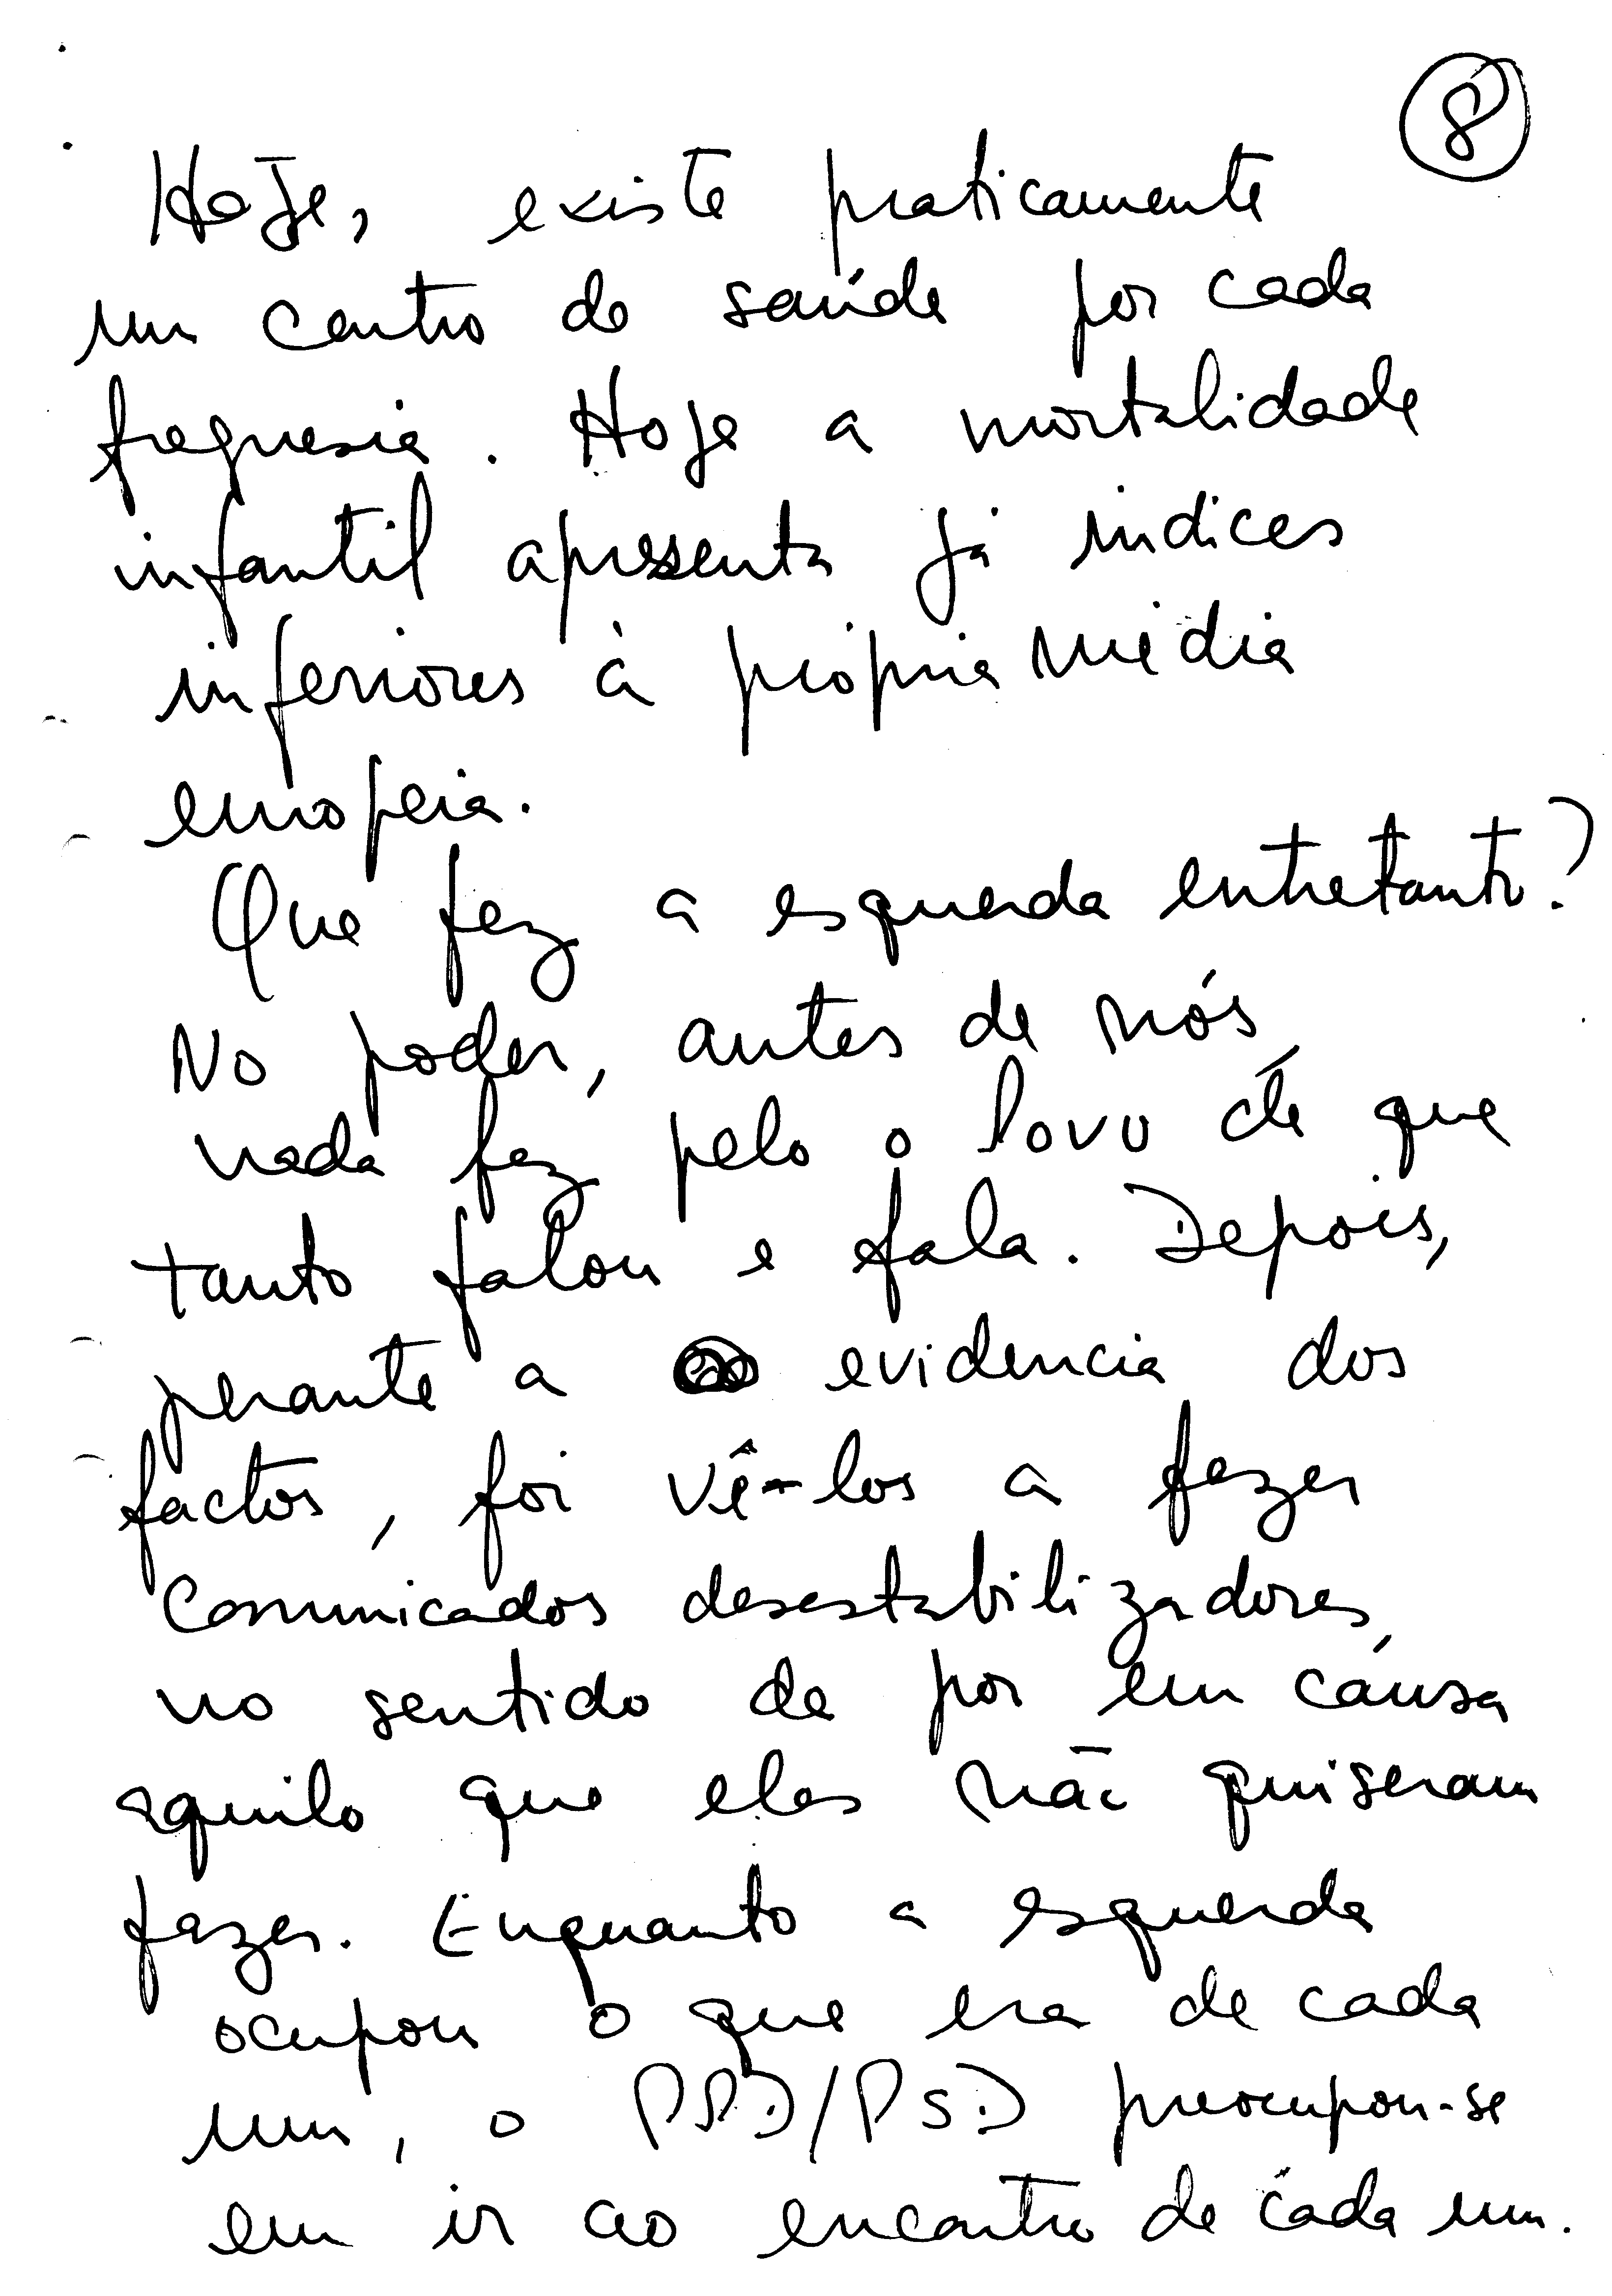 8
Hoje, existe praticamente
um centro de saúde por cada
freguesia. Hoje a mortalidade
infantil apresenta já indices
inferiores à própria média
europeia.
Que fez a esquerda entretanto?
No poder, antes de nós,
nada fez pelo o Povo de que
tanto falou e fala. Depois,
perante a evidencia dos
factos, foi vê-los a fazer
comunicados desestabilizadores,
no sentido de por em causa
aquilo que eles não quiseram
fazer. Enquanto a esquerda
ocupou o que era de cada
um, o PPD/PSD preocupou-se
em ir ao encontro de cada um.